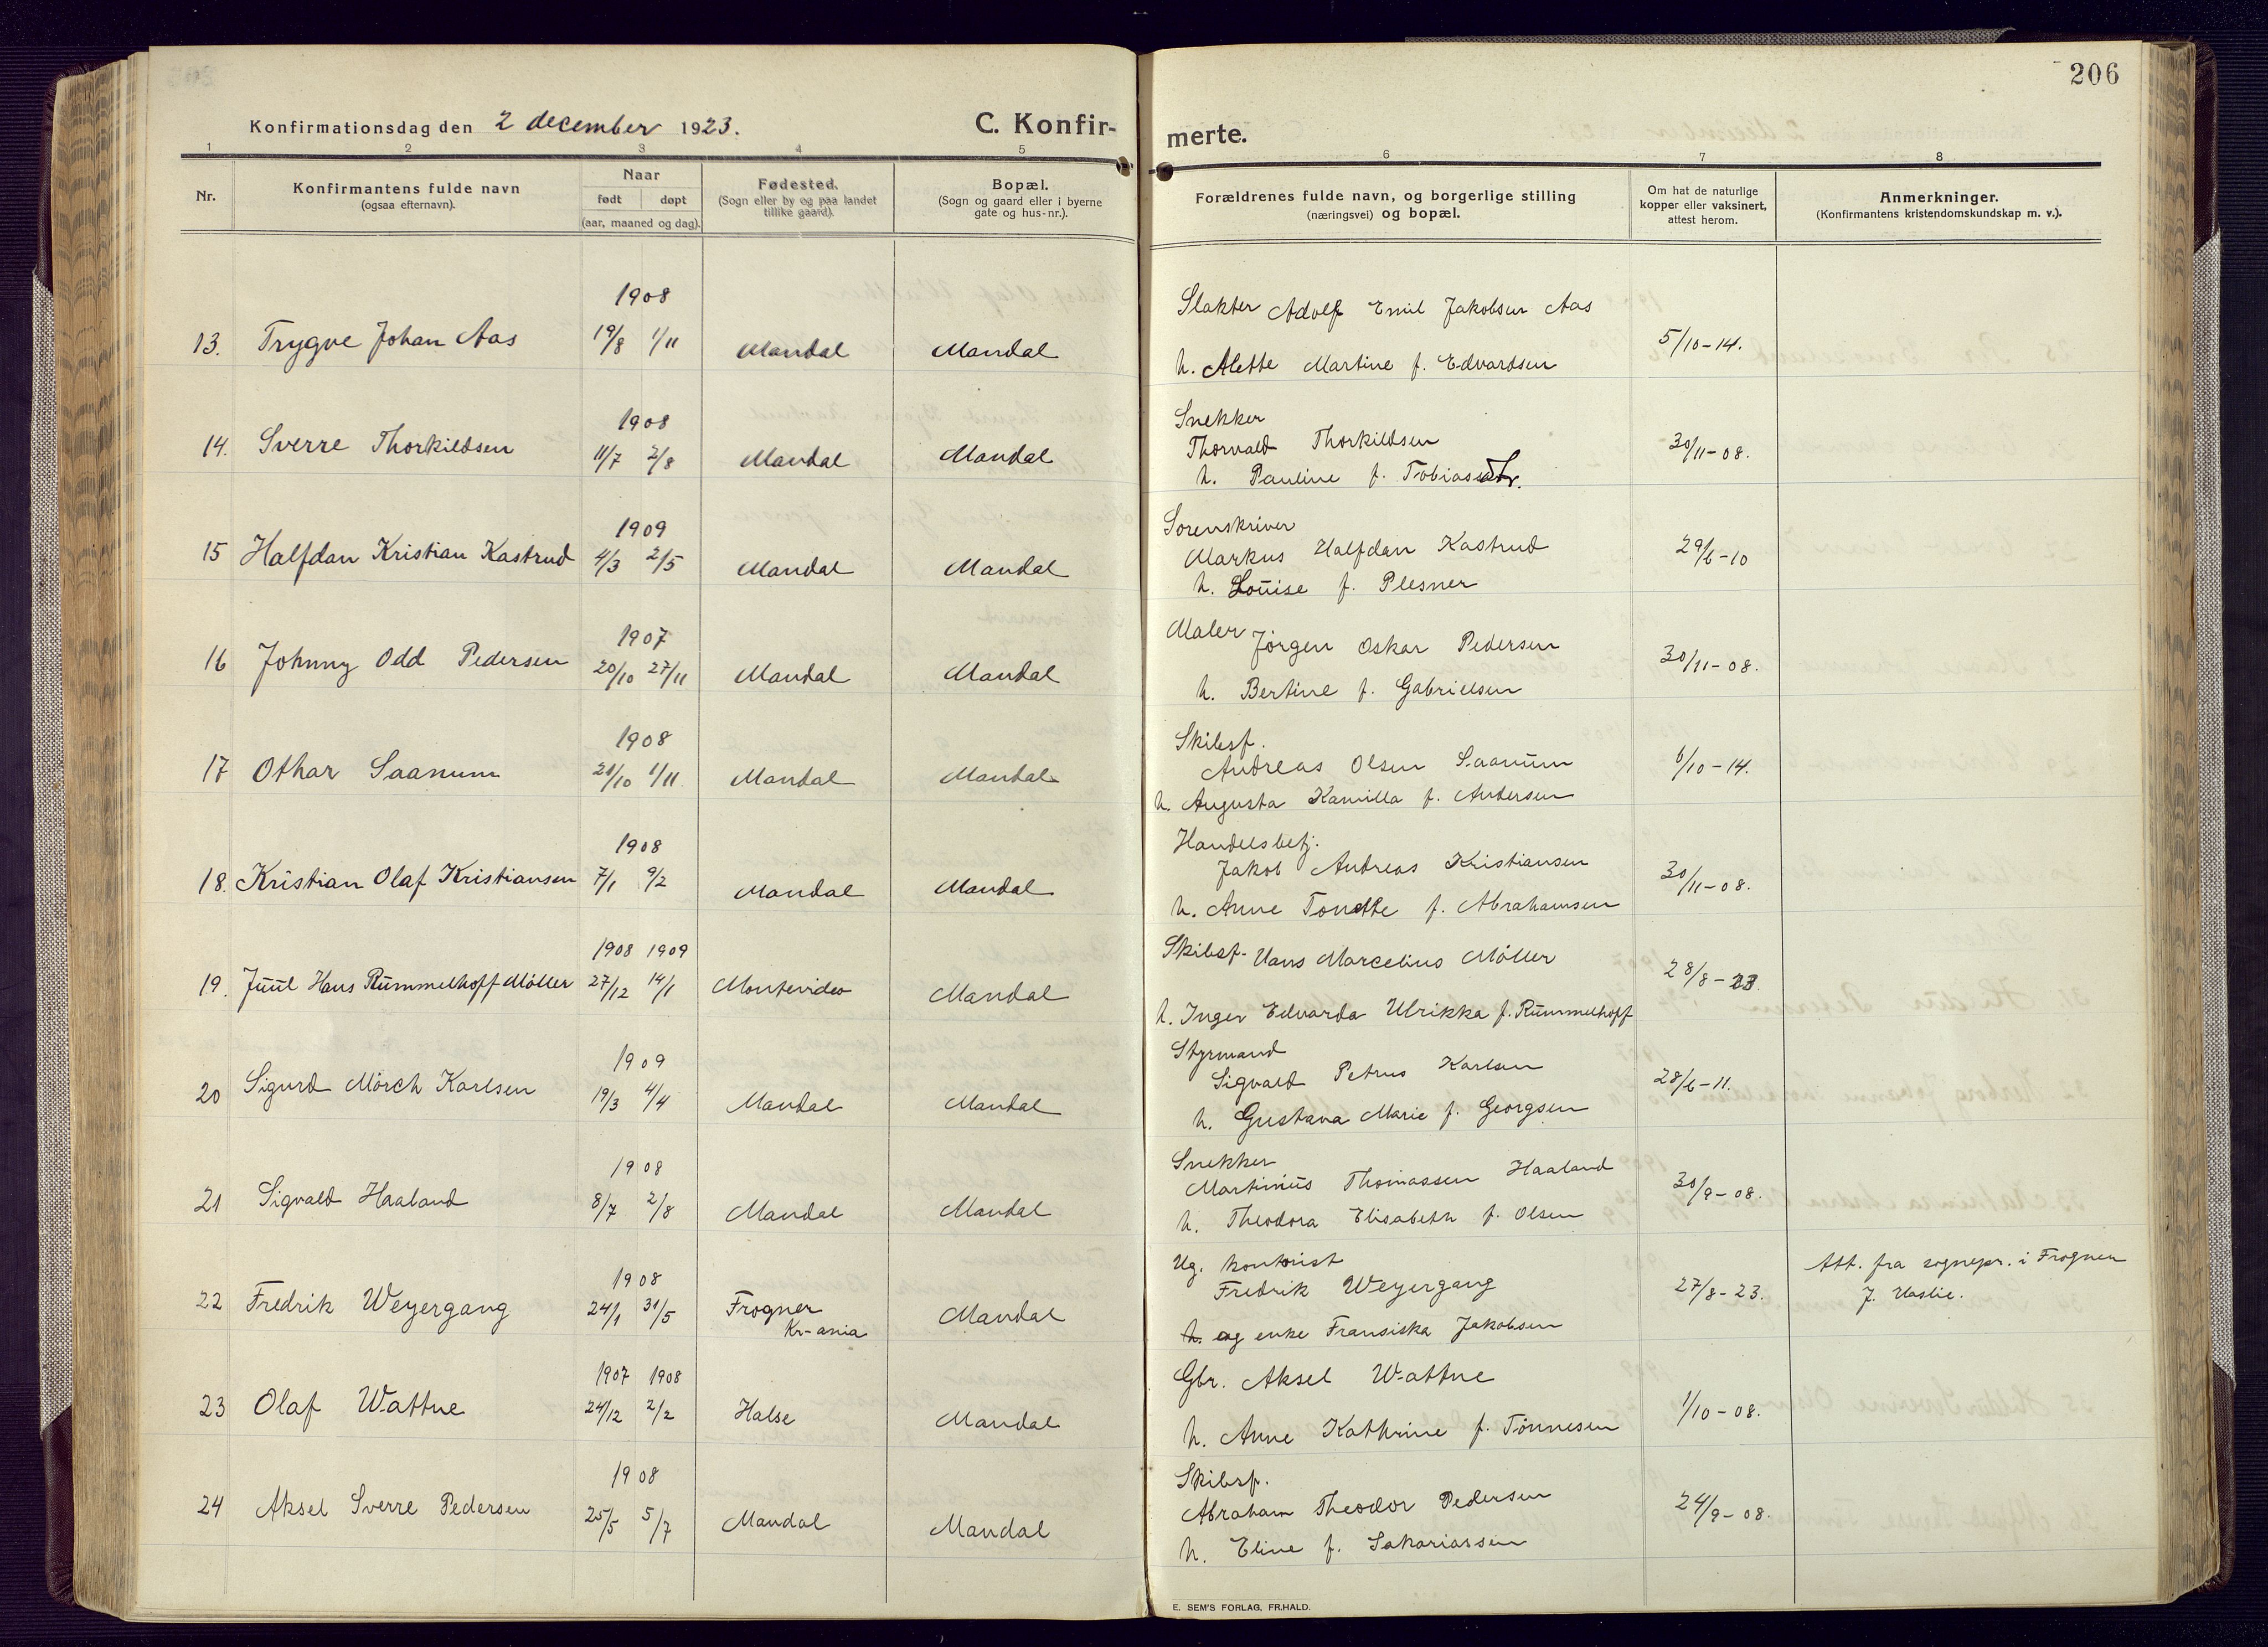 206
Konfirmationsdag den 2 december 1923.
C. Konfir-
merte.
1 2 3 4 5 6 7 8
Nr.
Konfirmantens fulde navn
(ogsaa efternavn).
Naar
født døpt
(aar, maaned og dag).
Fødested.
(Sogn eller by og paa landet
tillike gaard).
Bopæl.
(Sogn og gaard eller i byerne
gate og hus-nr.).
Forældrenes fulde navn, og borgerlige stilling
(næringsvei) og bopæl.
Om hat de naturlige
kopper eller vaksinert,
attest herom.
Anmerkninger.
(Konfirmantens kristendomskundskap m. v.).
1908
13. Trygve Johan Aas 19/8 1/11 Mandal Mandal
Slakter Adolf Emil Jakobsen Aas
h. Alette Martine f. Edvardsen
5/10-14.
1908
14. Sverre Thorkildsen 11/7 2/8 Mandal Mandal
Snekker
Thorvald Thorkildsen
h. Pauline f. Tobiasdtr.
30/11-08.
1909
15 Halfdan Kristian Kastrud 4/3 2/5 Mandal Mandal
Sorenskriver
Markus Halfdan Kastrud
h. Louise f. Plesner
29/6-10
1907
16 Johnny Odd Pedersen 20/10 27/11 Mandal Mandal
Maler Jörgen Oskar Pedersen
h. Bertine f. Gabrielsen
30/11-08.
1908
17 Othar Saanum 21/10 1/11 Mandal Mandal
Skibsf.
Andreas Olsen Saanum
h. Augusta Kamilla f. Andersen
6/10-14.
1908
18. Kristian Olaf Kristiansen 7/1 9/2 Mandal Mandal
Handelsbetj.
Jakob Andreas Kristiansen
h. Anne Tonette f. Abrahamsen
30/11-08.
1908 1909
19. Juul Hans Rummelhoff Möller 27/12 14/1 Montevideo Mandal
Skibsf. Hans Marcelius Möller
h. Inger Edvarda Ulrikka f. Rummelhoff
28/8-23.
1909
20 Sigurd Mörch Karlsen 19/3 4/4 Mandal Mandal
Styrmand
Sigvald Petrus Karlsen
h. Gustava Marie f. Georgsen
28/6-11.
1908
21 Sigvald Haaland 8/7 2/8 Mandal Mandal
Snekker
Martinius Thomassen Haaland
h. Theodora Elisabeth f. Olsen
30/9-08.
1908
22 Fredrik Weyergang 24/1 31/5 Frogner
Kr-ania
Mandal
Ug. kontorist
Fredrik Weyergang
h. og enke Fransiska Jakobsen
27/8-23.
Att. fra sognepr. i Frogner
J. Haslie.
1907 1908
23 Olaf Wattne 24/12 2/2 Halse Mandal
Gbr. Aksel Wattne
h. Anne Kathrine f. Tönnesen
1/10-08.
1908
24 Aksel Sverre Pedersen 25/5 5/7 Mandal Mandal
Skibsf.
Abraham Theodor Pedersen
h. Eline f. Sakariassen
24/9-08.
E. SEM'S FORLAG, FR.HALD.